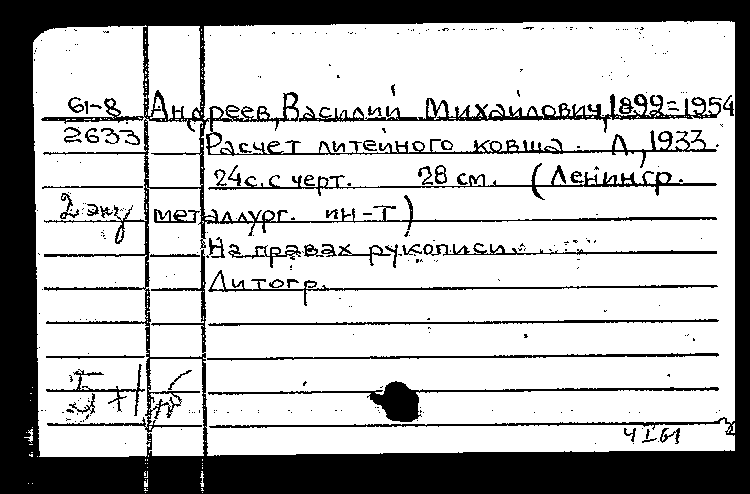 61-8 Андреев, Василий Михайлович, 1892=1954
2633 Расчет литейного ковша. Л., 1933.
24с. с черт. 28 см. (Ленингр.
2 экз металлург. ин-т)
На правах рукописи.
Литогр.
4 I 61